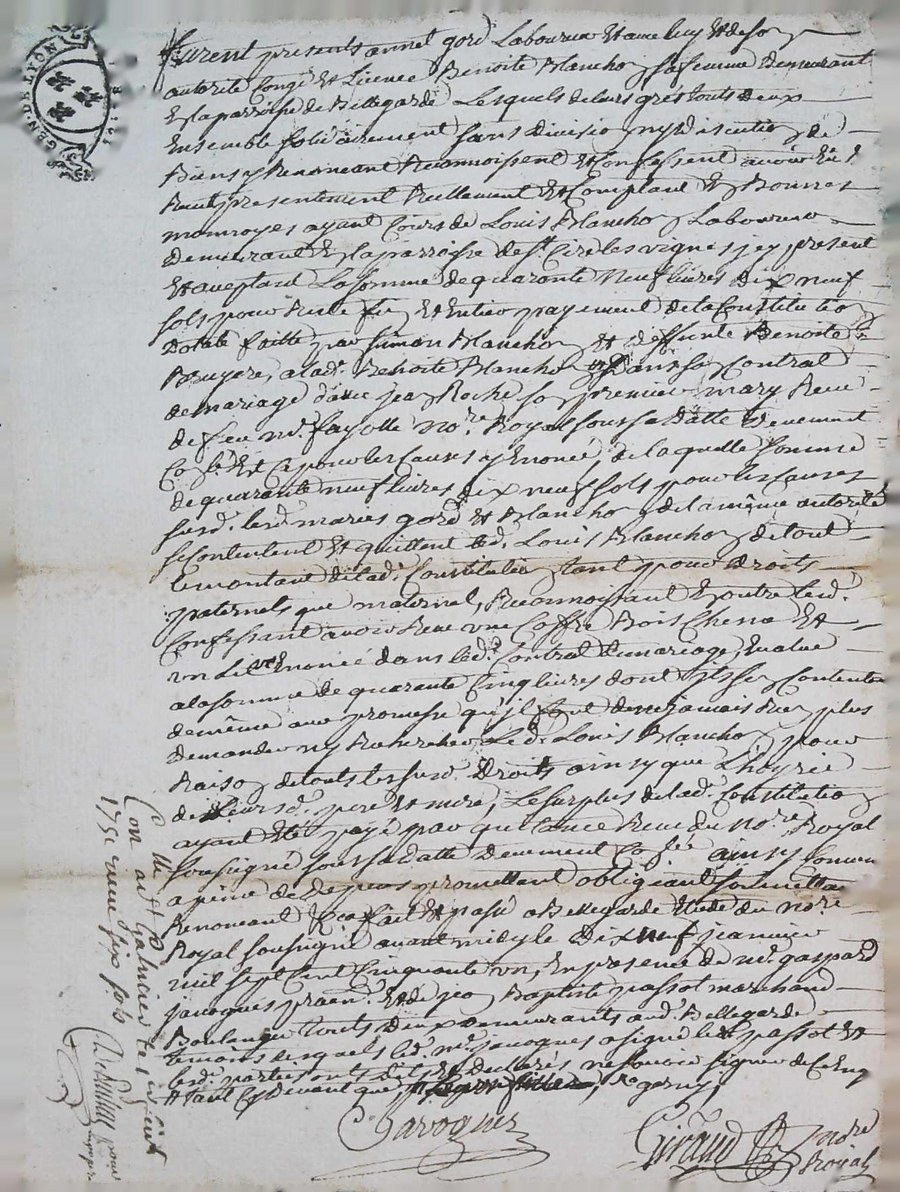 GEN. DE LYON
furent presents annet gord Laboureur et avec luy et de son
autorité Congé et Licence Benoite Blanchon sa femme demeurant
En la parroisse de Bellegarde Lesquels de leurs grés touts deux
Ensemble solidairement sans division ny discution de
Biens y Renonceant Reconnoissent et Confessent avoir Eü
Reçut presentement Reellement Et Comptant En Bonnes
monnoyes ayant Cours de Louis Blanchon Laboureur
demeurant En la parroisse de St Cire les vignes jcy present
et aceptant La somme de quarante neuf livres dix neuf
sols pour Reste fin et Entier payement de la Constitution
Dotale faitte par simon Blanchon et deffunte Benoite
Bruyere, a lad. Benoite Blanchon dans son Contrat
de mariage d'avec jean Roche son premier mary Receu
de feu me. fayolle nore. Royal sous sa datte deuement
Colé. Et Ce pour les Causes y Enoncé, de laquelle somme
de quarante neuf livres dix neuf sols pour les Causes
susd. lesd. mariés gord et Blanchon de la même autorité
se Contentent et quittent led. Louis Blanchon de tout
le montant de lad. Constitution tant pour droits
paternels que maternels, Reconnoissant En outre lesd.
Confessant avoir Receu un Coffre Bois Chene et
un Lit Enoncé dans led. Contrat de mariage, Evalué
a la somme de quarante Cinq livres dont Ils se Contentent
de même avec promesse de ne jamais Rien plus
demander ny Rechercher Led. Louis Blanchon pour
Raison de touts les susd. Droits ainsy que L'hoyrie
de leursd. pere et mere, Le surplus de lad. Constitution
ayant eté payé par quittance Receue du nore. Royal
soussigné sous sa datte deuement Colée. ainsy Convenu
a peine de Depens promettant obligeant soumettant
Renonceant &ca fait et passé a Bellegarde Etude du nore.
Royal soussigné avant midy le dix neuf jeanvier
mil sept Cent Cinquante un, En presence de me. gaspard
jaroques praen. Et de jean Baptiste passot marchand
Boulanger touts deux demeurants aud. Bellegarde
temoins desquels led. me. jaroques a signé led. passot et
lesd. parties ont dit et declarés ne scavoir signer de Ce Enq
Jaroques
Giraud nore Royal
1751 six sols